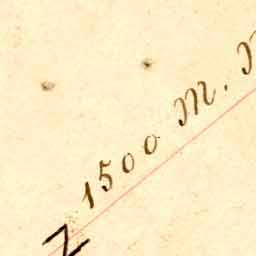 1500 M.